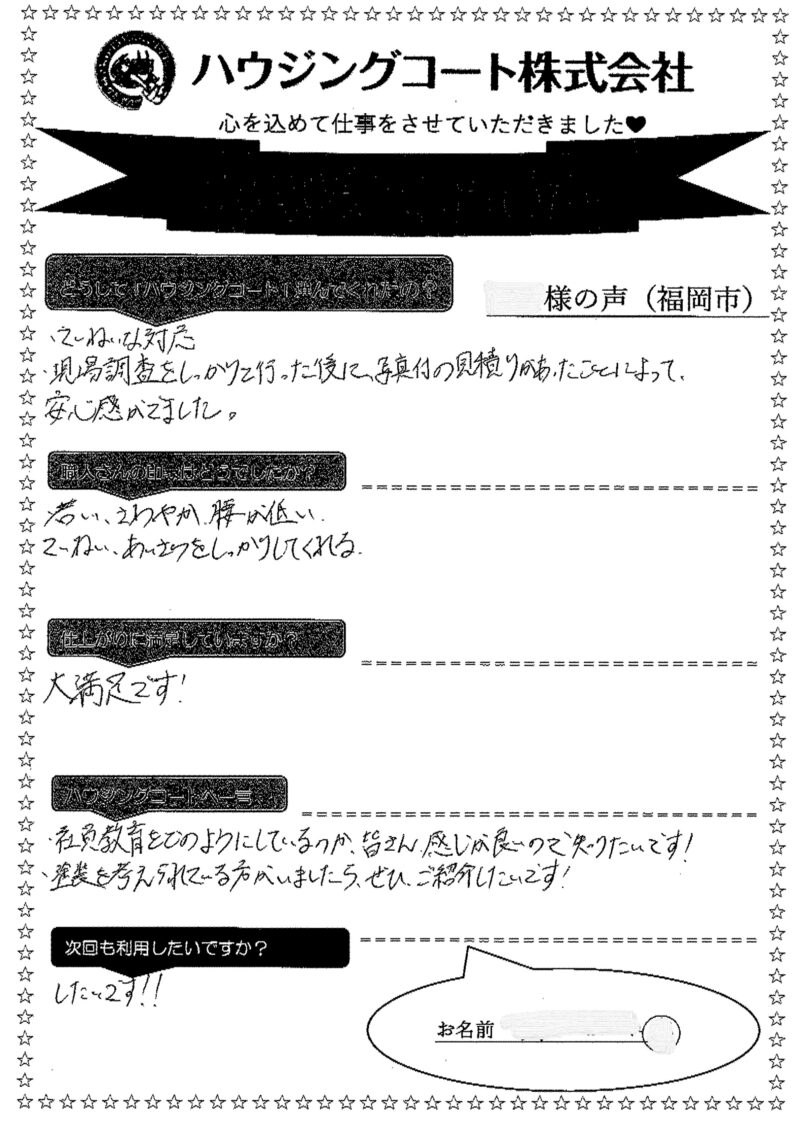 ハウジングコート株式会社
心を込めて仕事をさせていただきました♥
どうして「ハウジングコート」選んでくれたの？
様の声（福岡市）
・ていねいな対応
・現場調査をしっかりと行った後に、写真付の見積りがあったことによって、
安心感がでました。
職人さんの印象はどうでしたか？
若い、さわやか、腰が低い、
ていねい、あいさつをしっかりしてくれる。
仕上がりに満足していますか？
大満足です！
ハウジングコートへ一言
・社員教育をどのようにしているのか、皆さん、感じが良いので知りたいです！
・塗装を考えられている方がいましたら、ぜひ、ご紹介したいです！
次回も利用したいですか？
したいです！！
お名前